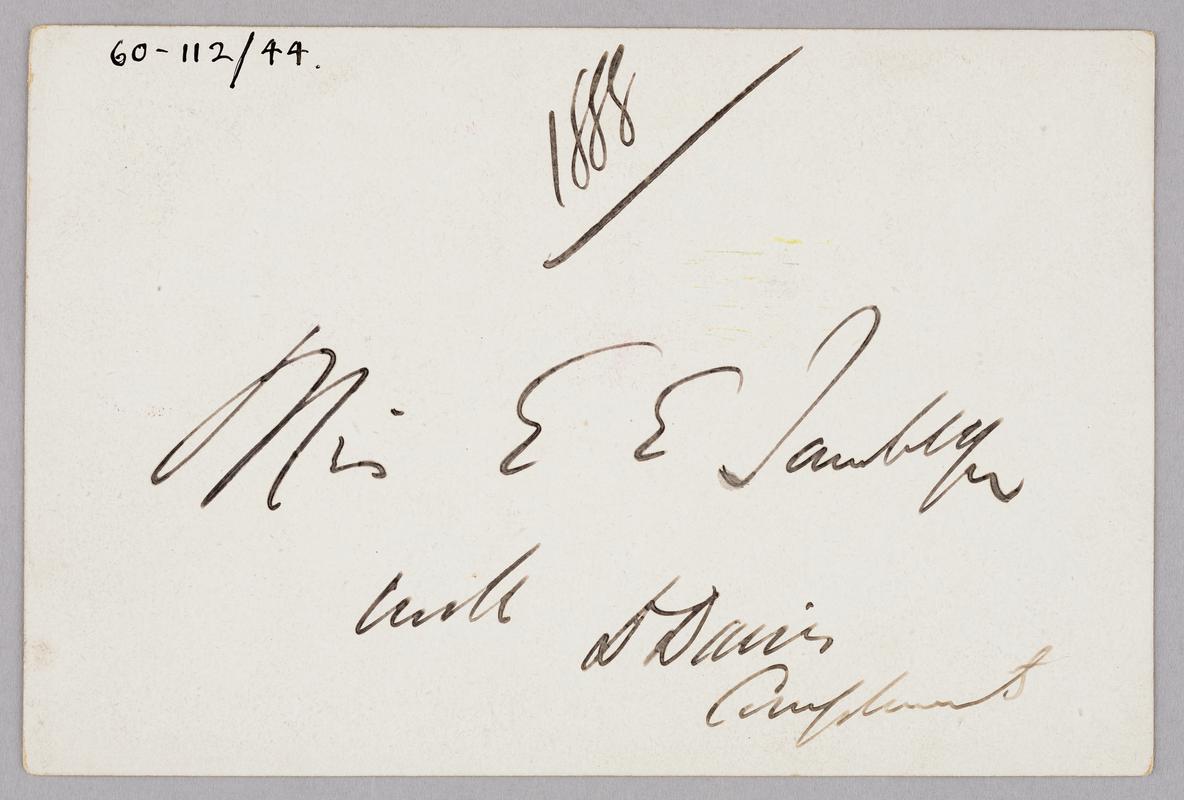 60-112/44.
1888
Miss E E
with D Davies
Compliments